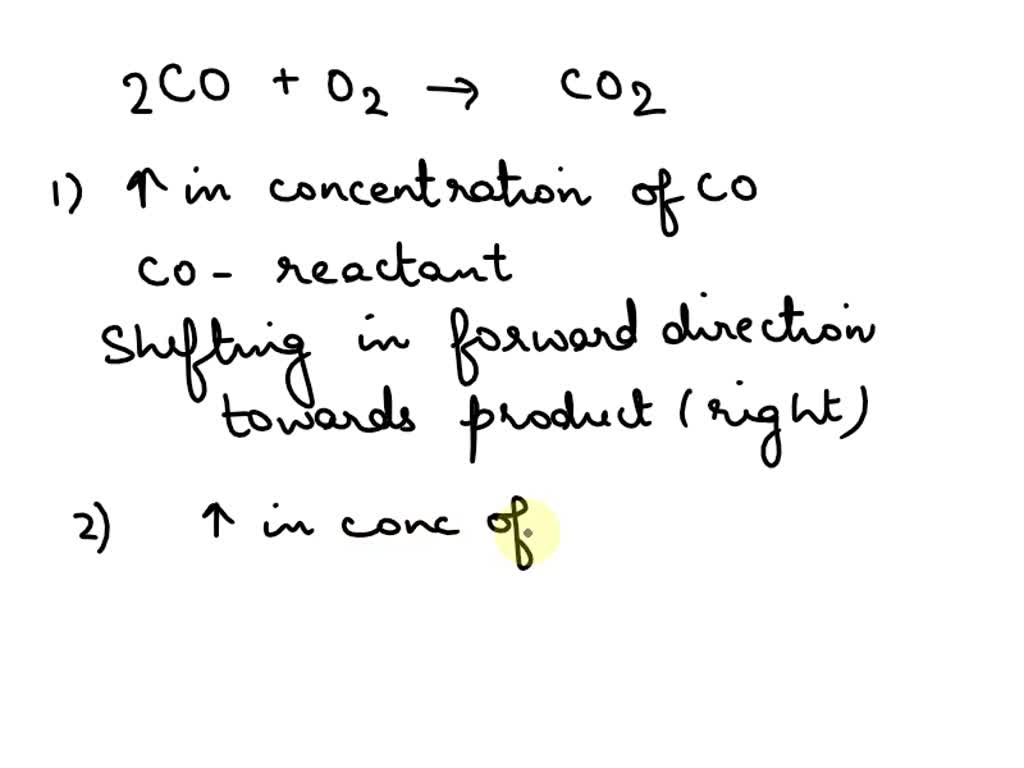 2CO + O2 → CO2
1) ↑ in concentration of CO
CO - reactant
Shifting in forward direction
towards product (right)
2) ↑ in conc of